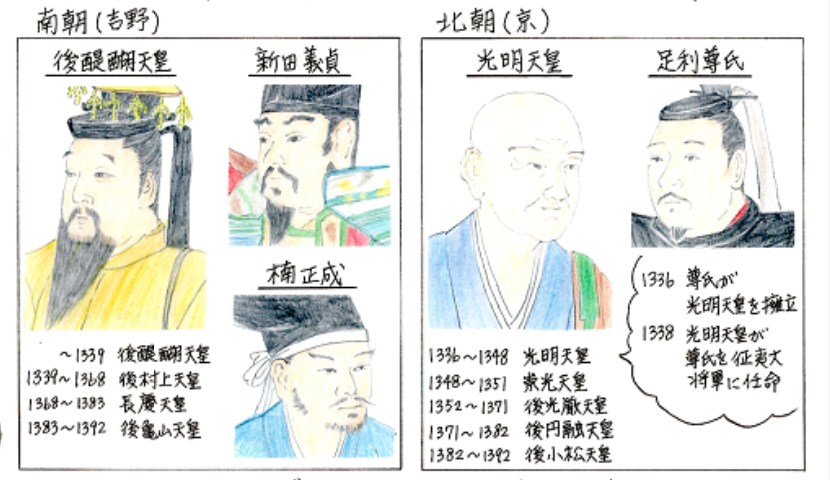 南朝(吉野)
後醍醐天皇
新田義貞
楠正成
~1339 後醍醐天皇
1339~1368 後村上天皇
1368~1383 長慶天皇
1383~1392 後亀山天皇
北朝(京)
光明天皇
足利尊氏
1336 尊氏が
光明天皇を擁立
1338 光明天皇が
尊氏を征夷大
将軍に任命
1336~1348 光明天皇
1348~1351 崇光天皇
1352~1371 後光厳天皇
1371~1382 後円融天皇
1382~1392 後小松天皇